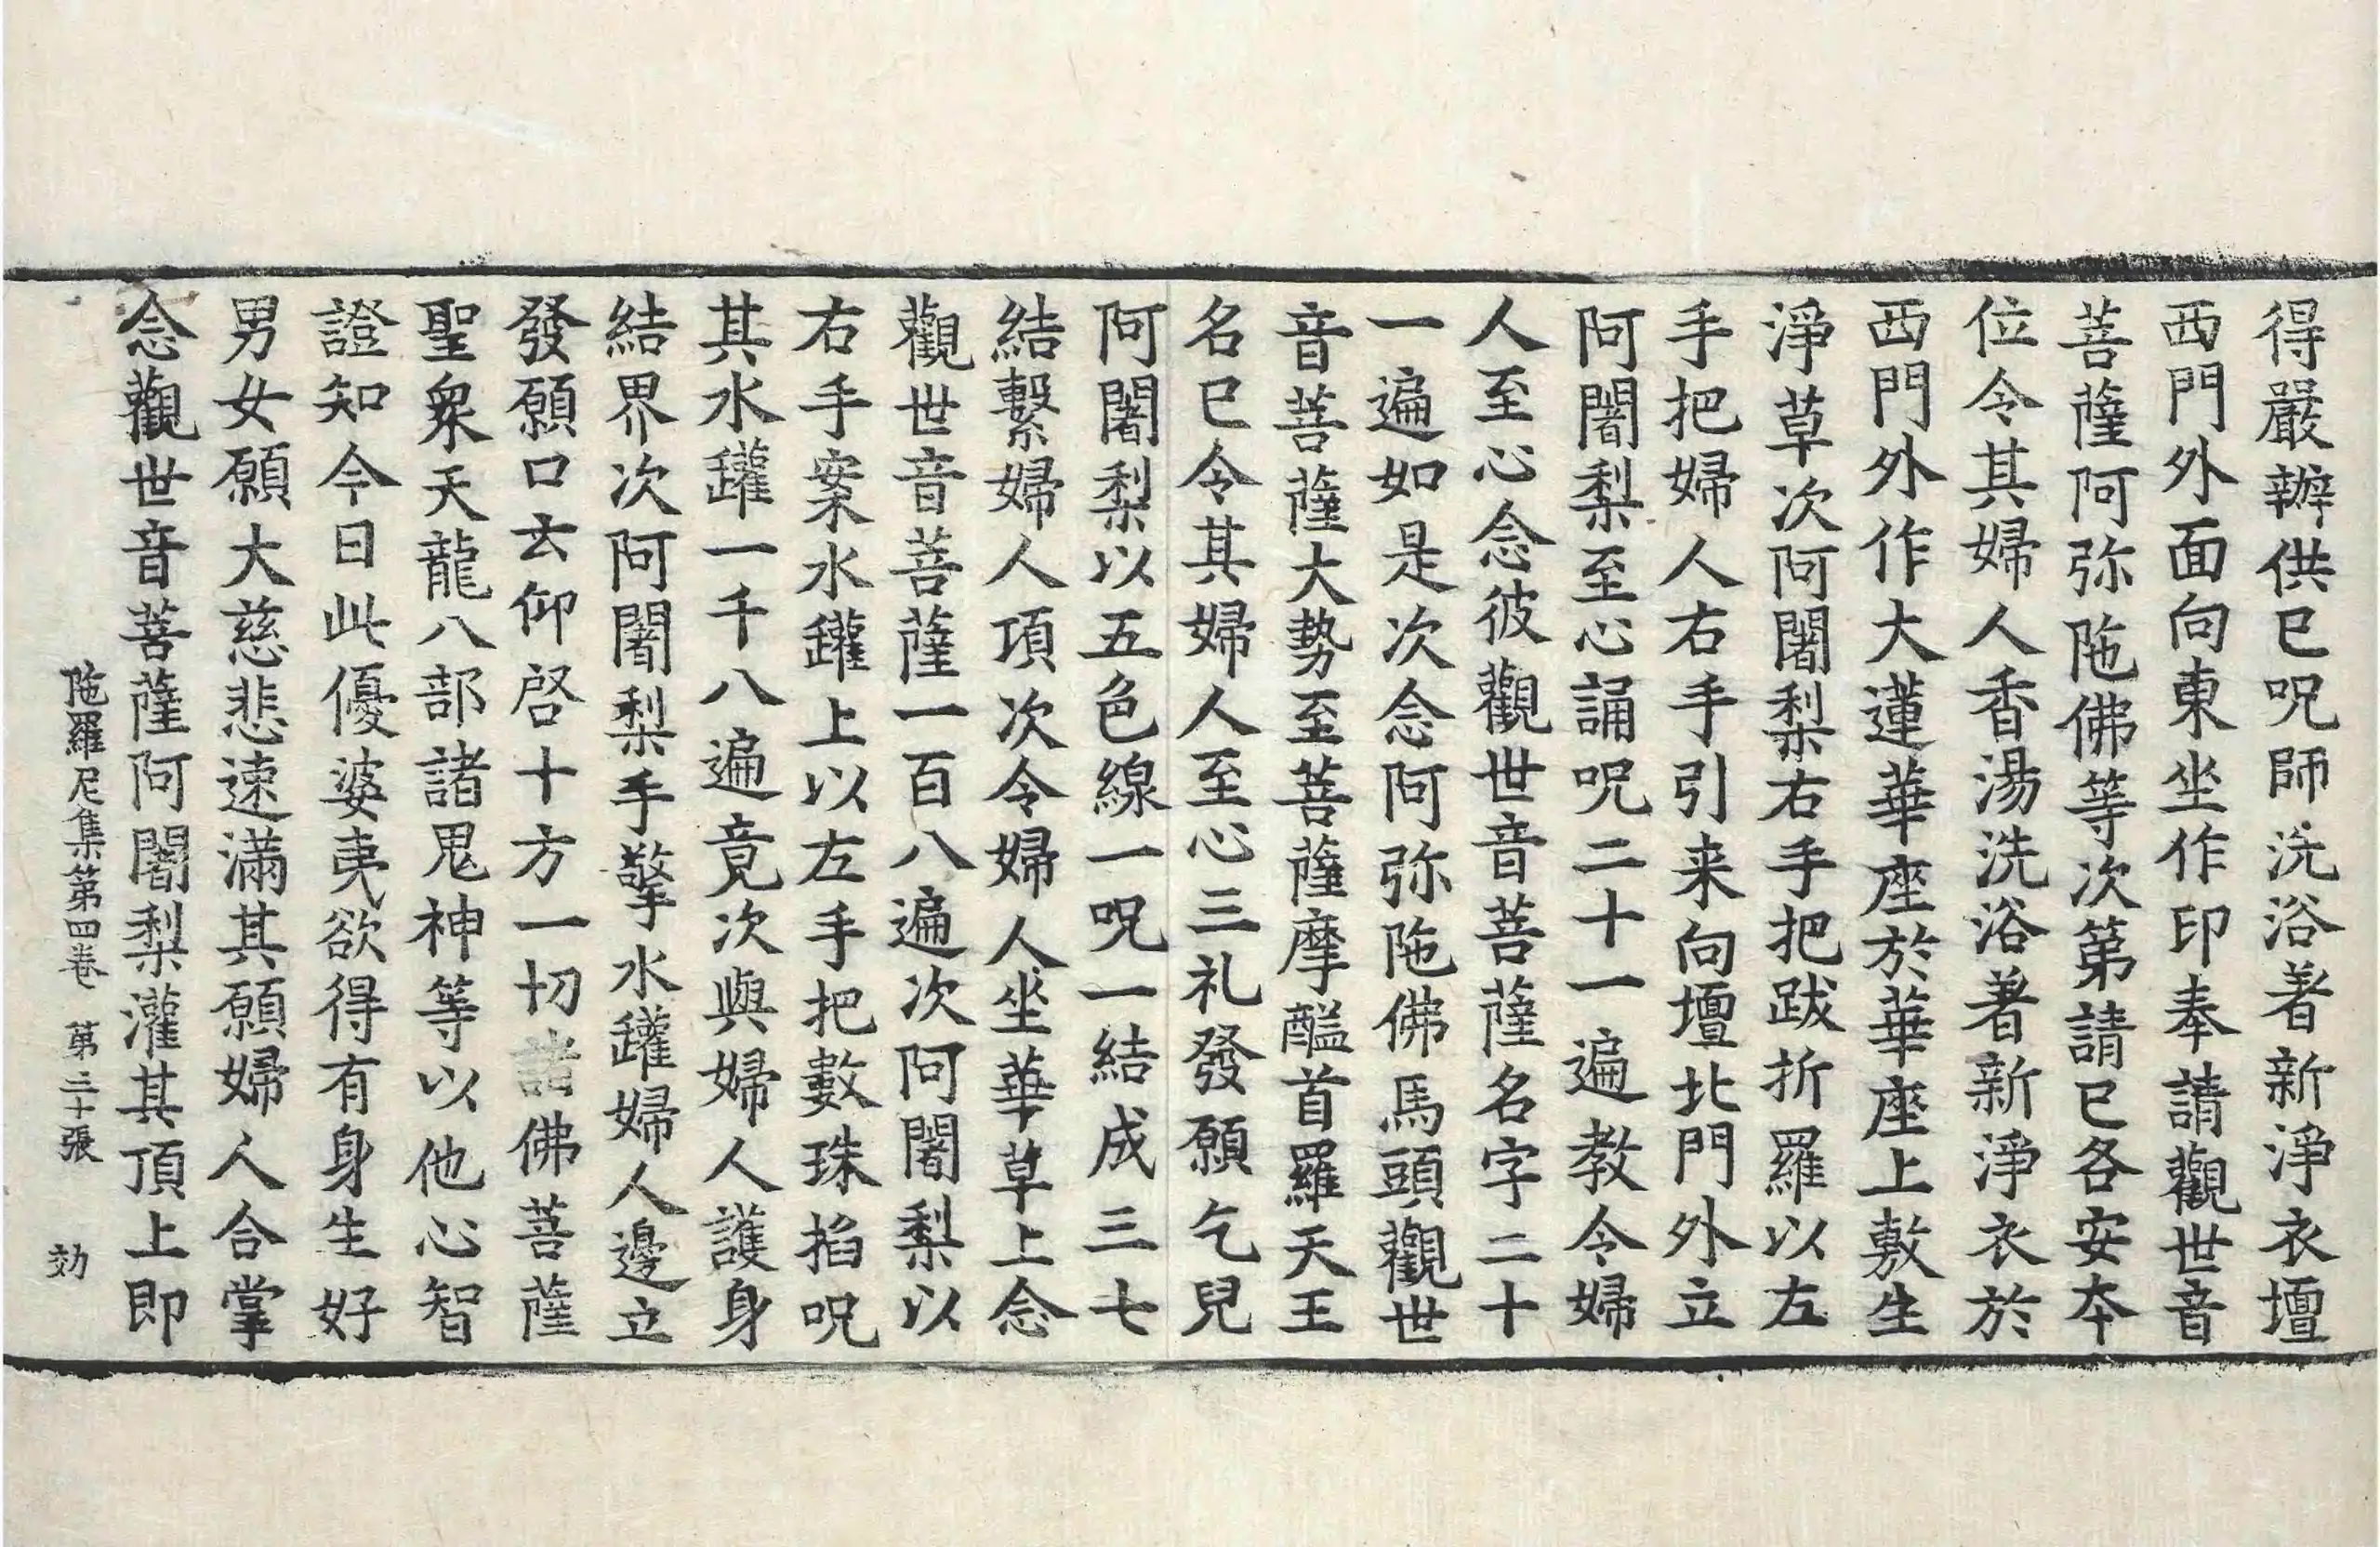 得嚴辦供已呪師洗浴著新淨衣壇
西門外面向東坐作印奉請觀世音
菩薩阿弥陁佛等次第請已各安夲
位令其婦人香湯洗浴著新淨衣於
西門外作大蓮華座於華座上敷生
淨草次阿闍梨右手把跋折羅以左
手把婦人右手引来向壇北門外立
阿闍梨至心誦呪二十一遍教令婦
人至心念彼觀世音菩薩名字二十
一遍如是次念阿弥陁佛馬頭觀世
音菩薩大勢至菩薩摩醯首羅天王
名已令其婦人至心三礼發願乞兒
阿闍梨以五色線一呪一結成三七
結繫婦人項次令婦人坐華草上念
觀世音菩薩一百八遍次阿闍梨以
右手案水鑵上以左手把數珠掐呪
其水鑵一千八遍竟次與婦人護身
結界次阿闍梨手擎水鑵婦人邊立
發願口云仰啓十方一切諸佛菩薩
聖衆天龍八部諸鬼神等以他心智
證知今日此優婆夷欲得有身生好
男女願大慈悲速滿其願婦人合掌
念觀世音菩薩阿闍梨灌其頂上即
陁羅尼集第四卷 第二十張 効